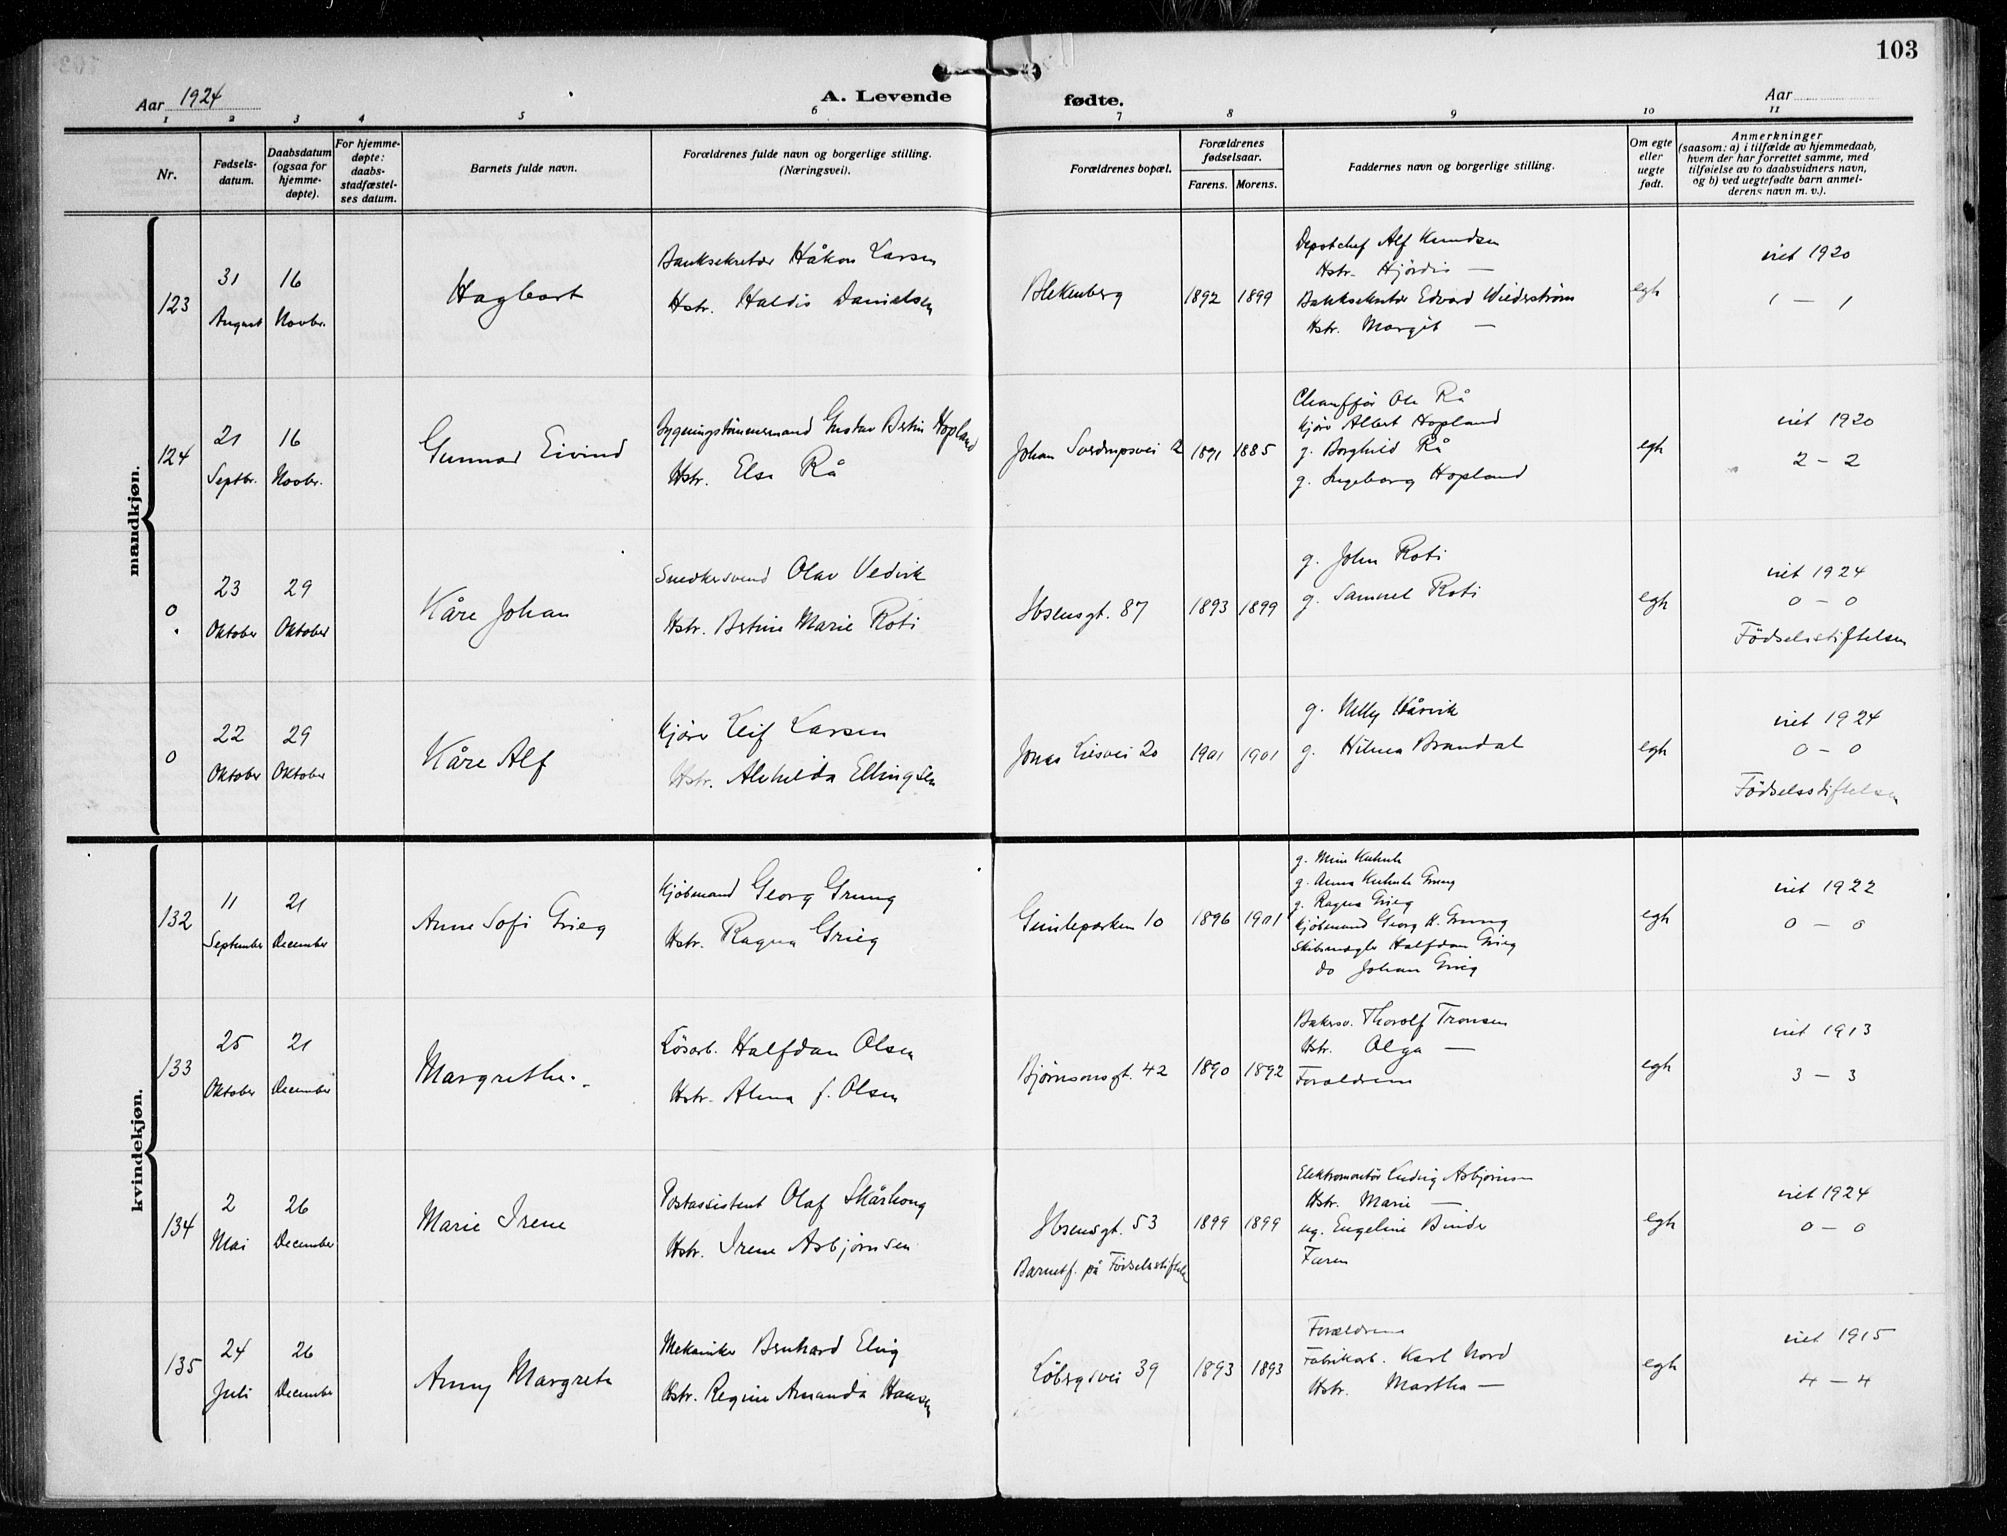 103
Aar 1924
A. Levende fødte.
Aar
1 2 3 4 5 6 7 8 9 10 11
Nr.
Fødsels-
datum.
Daabsdatum
(ogsaa for
hjemme-
døpte).
For hjemme-
døpte:
daabs-
stadfæstel-
ses datum.
Barnets fulde navn.
Forældrenes fulde navn og borgerlige stilling.
(Næringsvei).
Forældrenes bopæl.
Forældrenes
fødselsaar.
Farens. Morens.
Faddernes navn og borgerlige stilling.
Om egte
eller
uegte
født.
Anmerkninger
(saasom: a) i tilfælde av hjemmedaab,
hvem der har forrettet samme, med
tilføielse av to daabsvidners navn,
og b) ved uegtefødte barn anmel-
derens navn m. v.).
mandkjøn.
123
31
August
16
Novbr.
Hagbart
Banksekretær Håkon Larsen
Hstr. Haldis Danielsen
Blekenberg
1892 1899
Depotchef Alf Knudsen
Hstr. Hjördis —
Banksekretær Edvard Wiederstrøm
Hstr. Margit —
egte
viet 1920
1 – 1
124
21
Septbr.
16
Novbr.
Gunnar Eivind
Bygningstømmermand Gustav Bertin Hopland
Hstr. Else Rå
Johan Sverdrupsvei 12
1891 1885
Chauffør Ole Rå
Kjøre Albert Hopland
g. Borghild Rå
g. Ingeborg Hopland
egte
viet 1920
2 – 2
0
23
Oktober
29
Oktober
Kåre Johan
Snedkersvend Olav Vedvik
Hstr. Bertine Marie Roti
Ibsensgt. 87
1893 1899
g. John Roti
g. Samuel Roti
egte
viet 1924
0 – 0
Födselsstiftelsen
0
22
Oktober
29
Oktober
Kåre Alf
Kjører Leif Larsen
Hstr. Alvhilda Ellingsen
Jonas Liesvei 20
1901 1901
g. Nelly Kårvik
g. Hilma Brandal
egte
viet 1924
0 – 0
Födselsstiftelsen
kvindekjøn.
132
11
September
21
December
Anne Sofi Grieg
Kjøbmand Georg Grung
Hstr. Ragna Grieg
Gimleparken 10
1896 1901
g. Mimi Kuhnle
g. Anna Kuhnle Grung
g. Ragna Grieg
Kjøbmand Georg H. Grung
Skibsmægler Halfdan Grieg
do Johan Grieg
egte
viet 1922
0 – 0
133
25
Oktober
21
December
Margrethe.
Løsarb. Halfdan Olsen
Hstr. Alma f. Olsen
Bjørnsonsgt. 42
1890 1892
Bakersv. Thorolf Tronsen
Hstr. Olga —
Forældrene
egte
viet 1913
3 – 3
134
2
Mai
26
December
Marie Irene
Postassistent Olaf Skårhoug
Hstr. Irene Asbjørnsen
Ibsensgt. 53
Barnet f. på Fødselsstiftelsen
1899 1899
Elektromontør Ludvig Asbjørnsen
Hstr. Marie —
ug. Engeline Binde
Faren
egte
viet 1924
0 – 0
135
24
Juli
26
December
Anny Margrete
Mekaniker Bernhard Elvig
Hstr. Regine Amanda Hansen
Løbergsvei 39
1893 1893
Forældrene
Fabrikarb. Karl Nord
Hstr. Martha —
egte
viet 1915
4 – 4